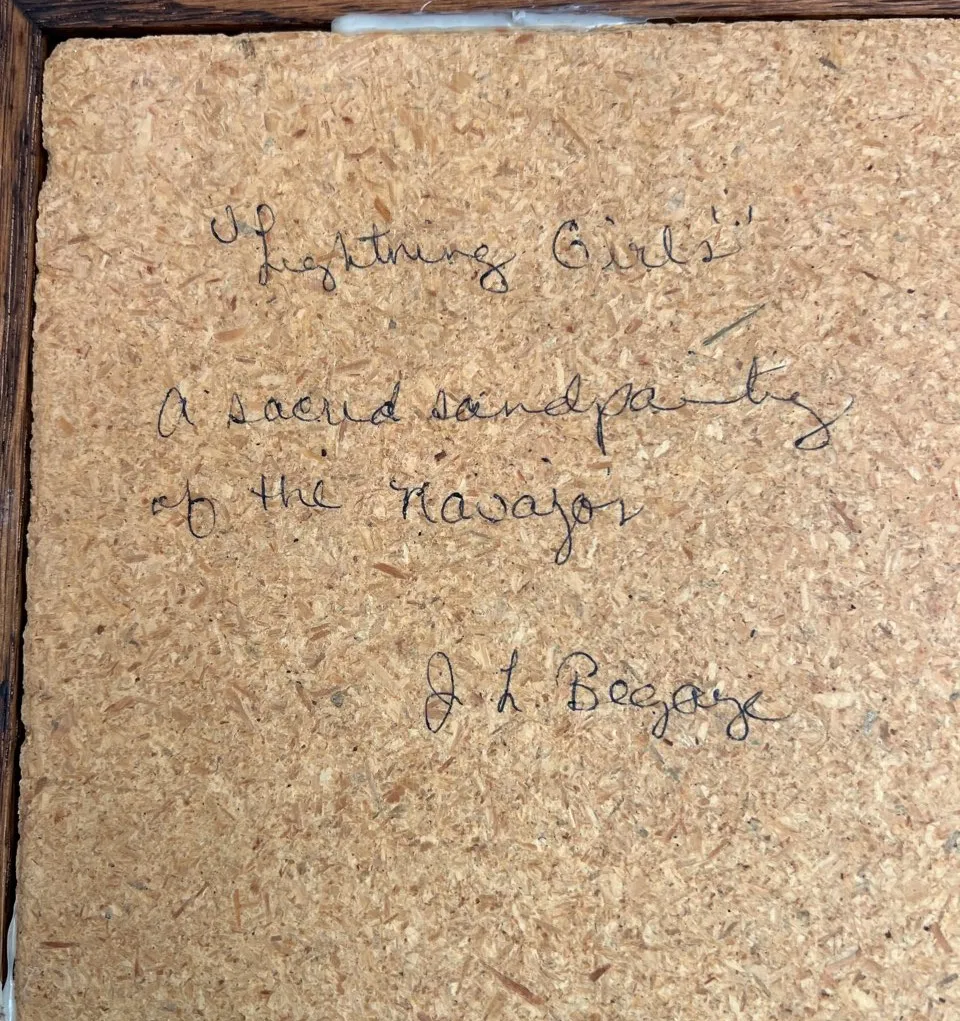 "Lightning Girls"
A sacred sandpainting
of the Navajos
J. L. Begaye